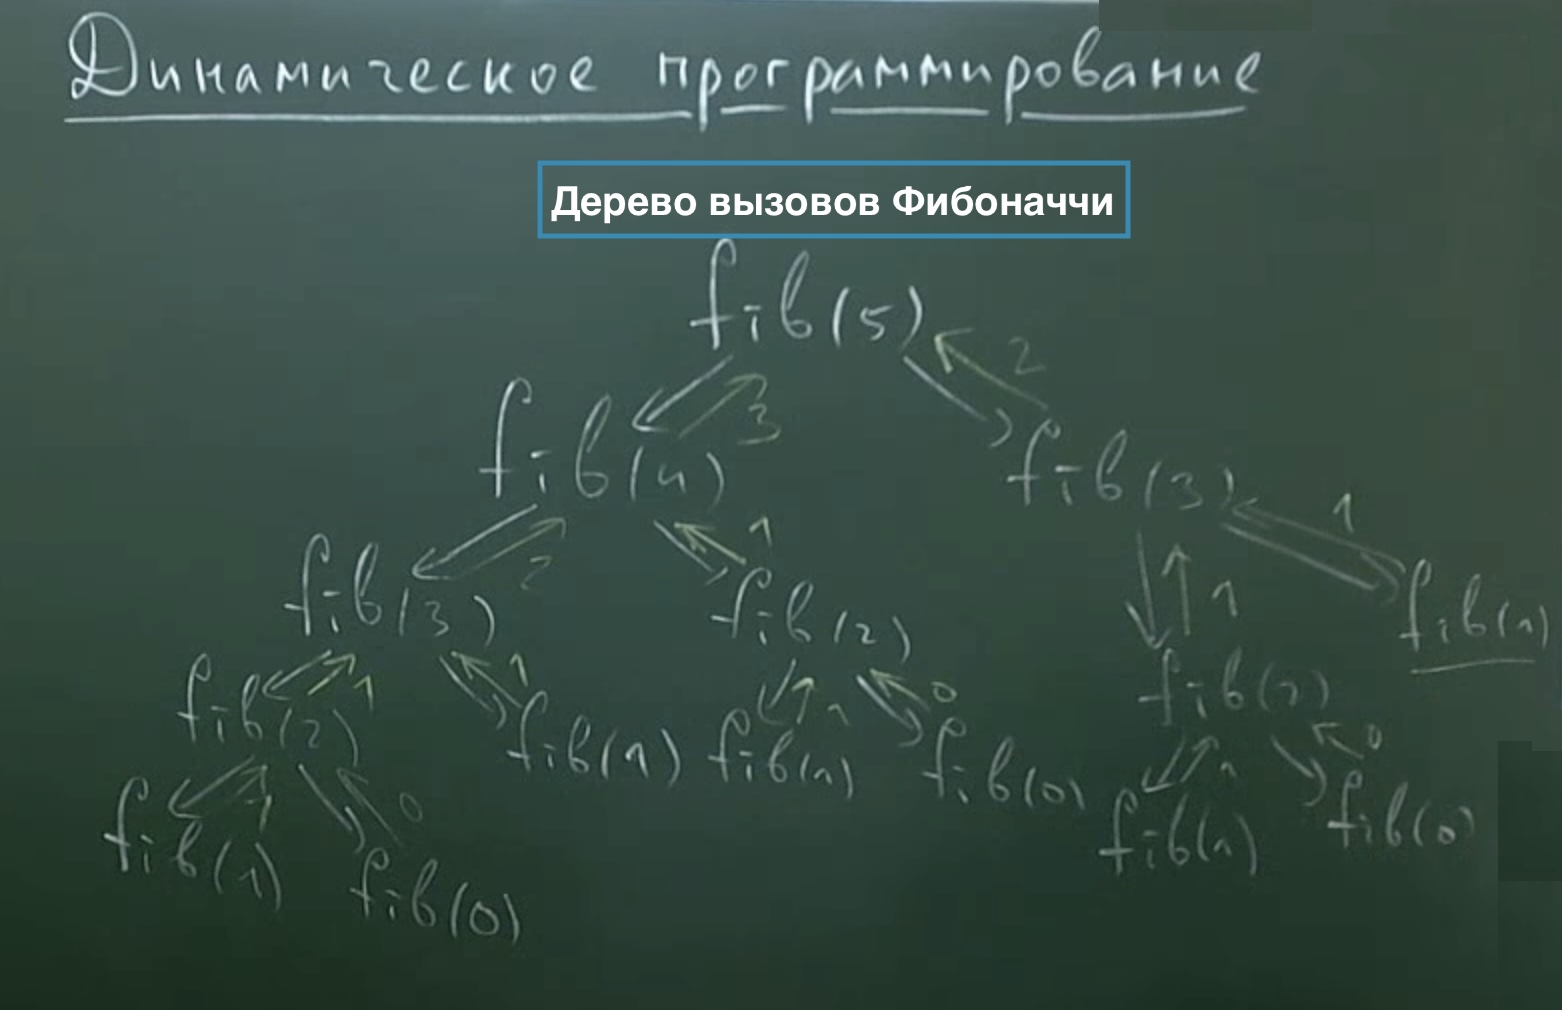 Динамическое программирование
Дерево вызовов Фибоначчи
fib(5)
2
3
fib(4)
fib(3)
1
2
1
fib(3)
fib(2)
1
fib(1)
1
1
fib(2)
fib(1)
1
fib(1)
0
fib(0)
fib(2)
1
fib(1)
0
fib(0)
1
fib(1)
0
fib(0)